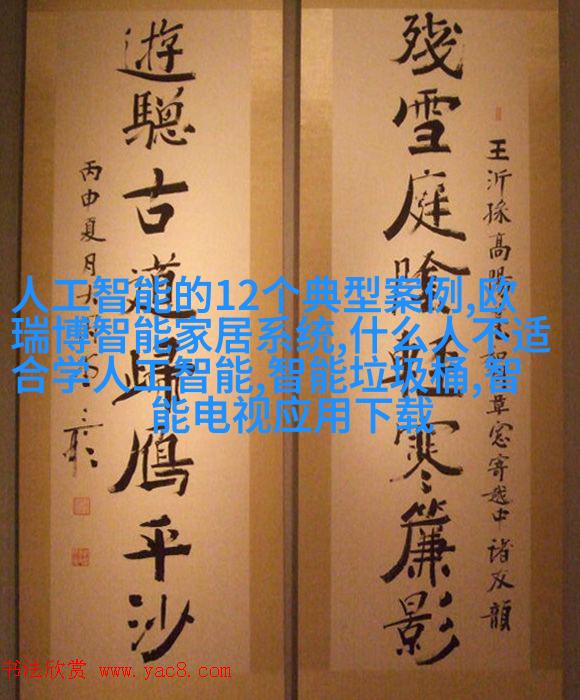 王沂孫高陽臺和周草窓寄越中諸友韻
殘雪庭陰輕寒簾影
遊驄古道歸鴈平沙
丙申夏月
人工智能的12个典型案例,欧
瑞博智能家居系统,什么人不适
合学人工智能,智能垃圾桶,智
能电视应用下载
书法欣赏 www.yac8.com